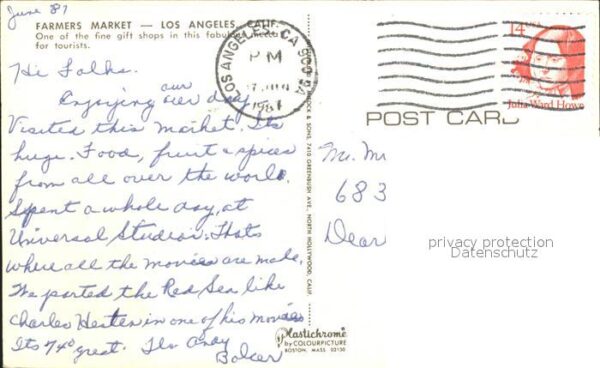 June 87
FARMERS MARKET — LOS ANGELES, CALIF.
One of the fine gift shops in this fabulous mecca
for tourists.
Hi Folks.
our
Enjoying our day
Visited this market. Its
huge. Food, fruit & spices
from all over the world.
Spent a whole day, at
Universal Studios. Thats
where all the movies are made.
We parted the Red Sea like
Charles Heston in one of his movies
Its 74° great.
LOS ANGELES, CA 900
PM
1987
14 USA
Julia Ward Howe
POST CARD
& SONS, 7410 GREENBUSH AVE. NORTH HOLLYWOOD, CALIF.
683
Dear
privacy protection
Datenschutz
Plastichrome®
by COLOURPICTURE
BOSTON, MASS. 02130